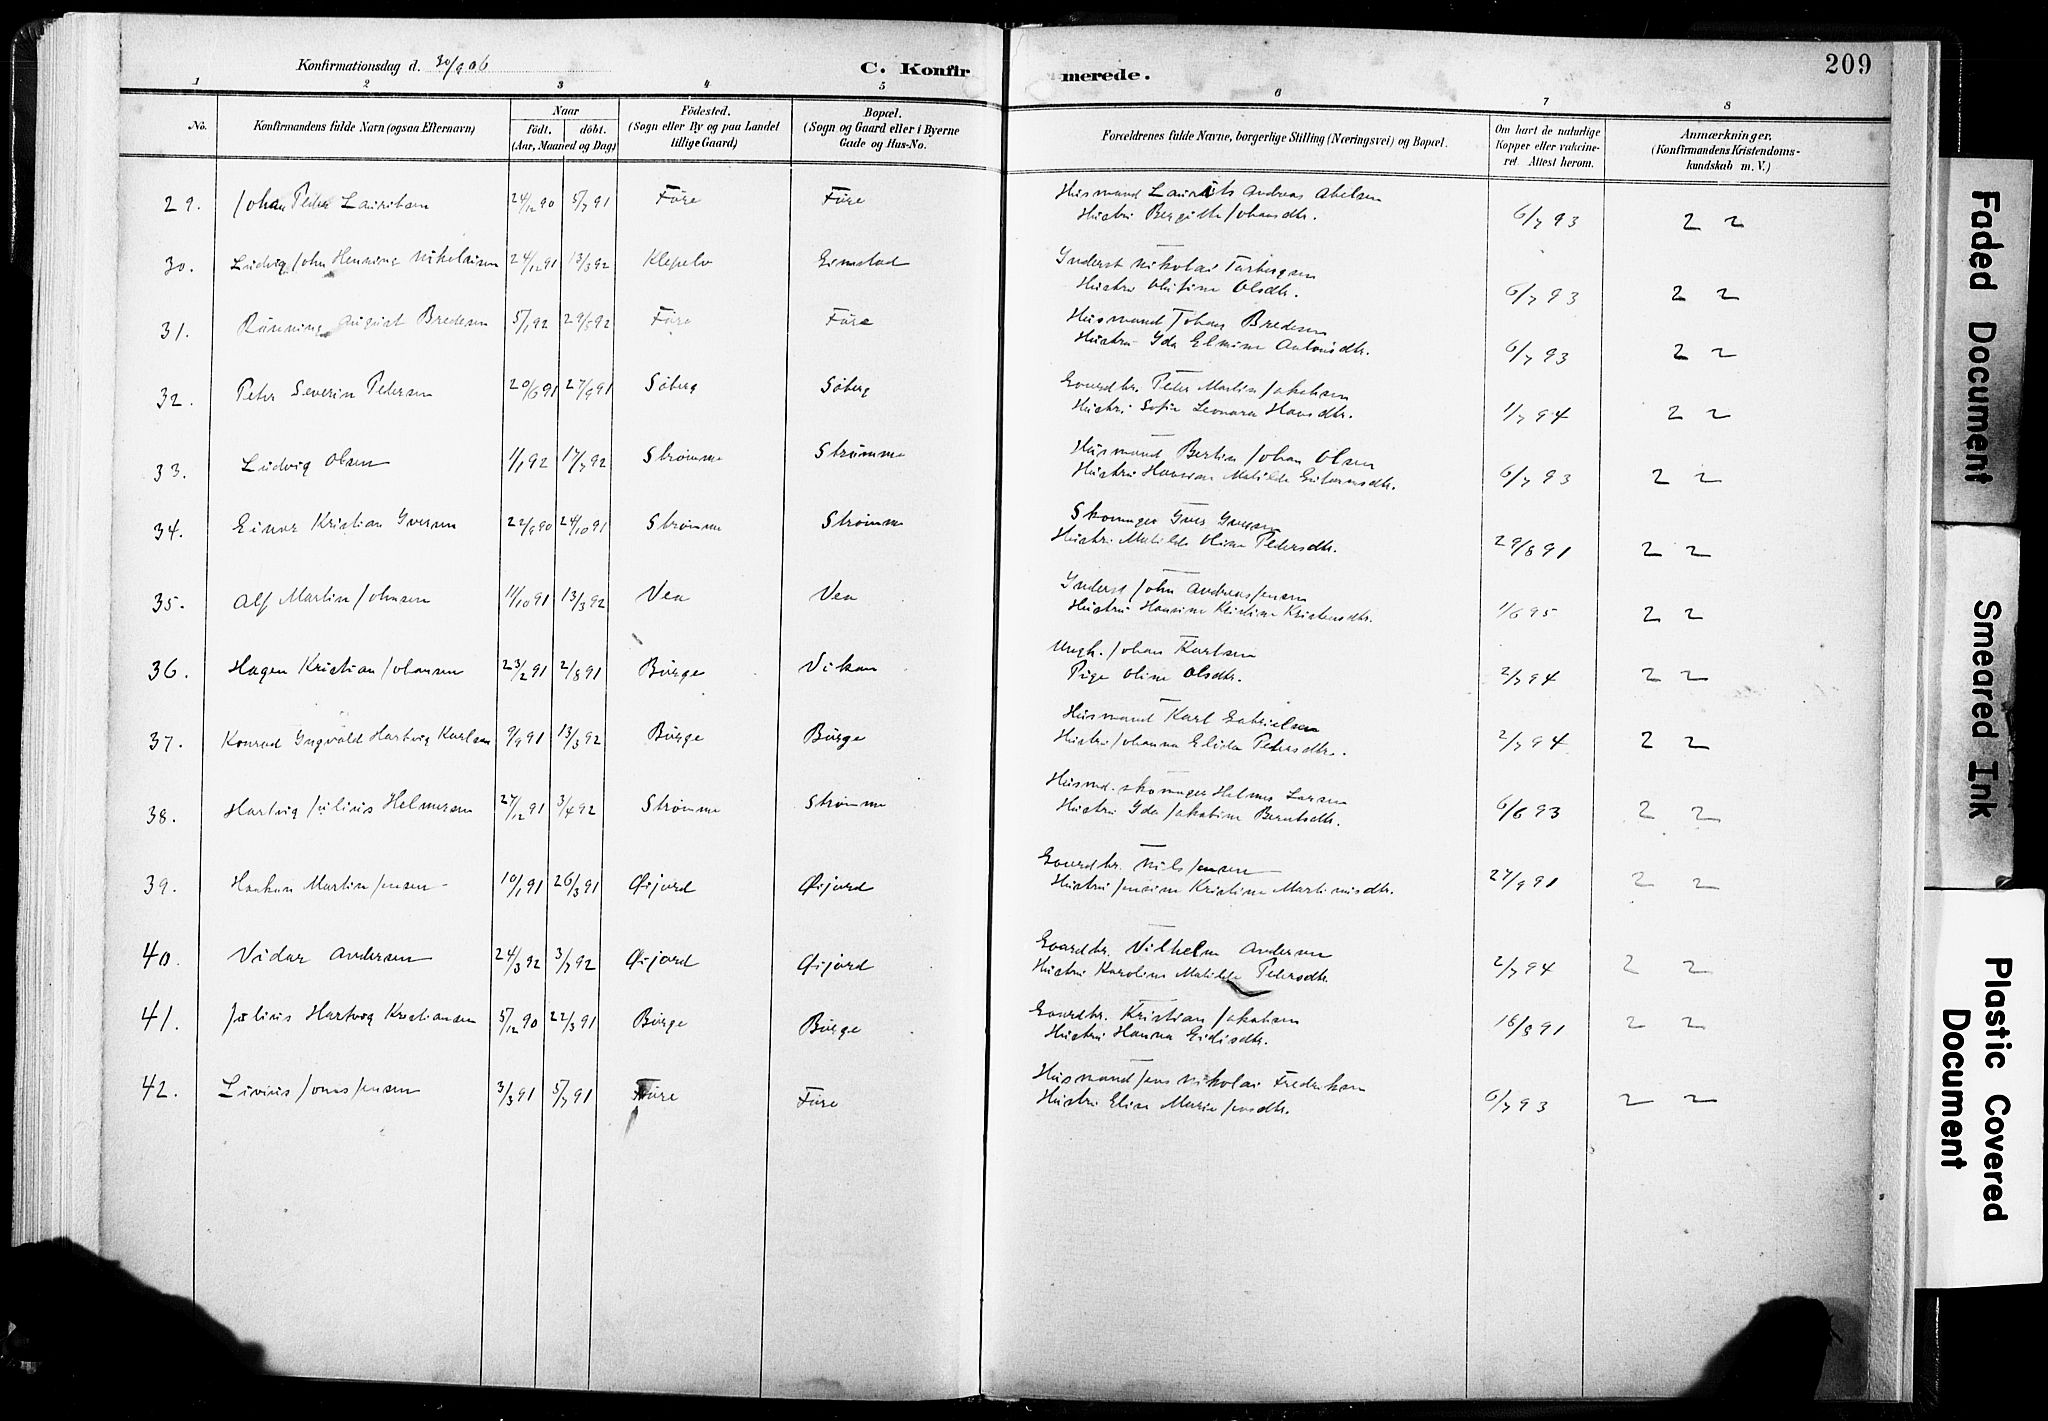 Konfirmationsdag d. 30/9 06
C. Konfirmerede.
209
1 2 3 4 5 6 7 8
No.
Konfirmandens fulde Navn (ogsaa Efternavn)
Naar
født. døbt.
(Aar, Maaned og Dag)
Fødested.
(Sogn eller By og paa Landet
tillige Gaard)
Bopæl.
(Sogn og Gaard eller i Byerne
Gade og Hus-No.
Forældrenes fulde Navne, borgerlige Stilling (Næringsvei) og Bopæl.
Om havt de naturlige
Kopper eller vakcine-
ret. Attest herom.
Anmærkninger.
(Konfirmandens Kristendoms-
kundskab m. V.)
29. Johan Peder Lauritsen 24/12 90 5/7 91 Føre Føre Husmand Laurits Andreas Abelsen
Hustru Bergitte Johansdtr. 6/7 93 2 2
30. Ludvig John Henning Nikolaisen 24/12 91 13/3 92 Klepelv Eimstad Inderst Nikolai Torbergsen
Hustru Olufine Olsdtr. 6/7 93 2 2
31. Rønning August Bredesen 5/1 92 29/5 92 Føre Føre Husmand Johan Bredesen
Hustru Ida Elmine Antonsdtr. 6/7 93 2 2
32. Peter Severin Pedersen 20/6 91 27/9 91 Søberg Søberg Gaardbr. Peter Martin Jakobsen
Hustru Sofie Leonara Hansdtr. 1/7 94 2 2
33. Ludvig Olsen 1/1 92 17/7 92 Strømme Strømme Husmand Bertin Johan Olsen
Hustru Matilde 6/7 93 2 2
34. Einar Kristian Iversen 22/9 90 24/10 91 Strømme Strømme Skomager Iver Iversen
Hustru Matilde Oline Pedersdtr. 29/8 91 2 2
35. Alf Martin Johnsen 11/10 91 13/3 92 Vea Vea Inderst John Andreas Jensen
Hustru Hansine Kristine Kristensdtr. 1/6 95 2 2
36. Hagen Kristian Johansen 23/2 91 2/8 91 Børge Vikan Ungk. Johan Karlsen
Pige Oline Olsdtr. 2/7 94 2 2
37. Konrad Ingvald Hartvig Karlsen 9/9 91 13/3 92 Børge Børge Husmand Karl Gabrielsen
Hustru Johanna Elida Petersdtr. 2/7 94 2 2
38. Hartvig Julius Helmersen 27/12 91 3/4 92 Strømme Strømme Husmd. skomager Helmer Larsen
Hustru Ida Jakobine Berntsdtr. 6/6 93 2 2
39. Haakon Martin Jensen 10/1 91 26/3 91 Øijord Øijord Gaardbr. Nils Jensen
Hustru Jensine Kristine Martinusdtr. 27/9 91 2 2
40. Vidar Andersen 24/3 92 3/7 92 Øijord Øijord Gaardbr. Vilhelm Andersen
Hustru Karoline Matilde Petersdtr. 2/7 94 2 2
41. Julius Hartvig Kristiansen 5/12 90 22/3 91 Børge Børge Gaardbr. Kristian Jakobsen
Hustru Hanna Eidisdtr. 16/8 91 2 2
42. Livius Jons Jensen 3/3 91 5/7 91 Føre Føre Husmand Jens Nikolai Fredriksen
Hustru Elisa Marie Jonsdtr. 6/7 93 2 2
Faded Document
Smeared Ink
Plastic Covered
Document